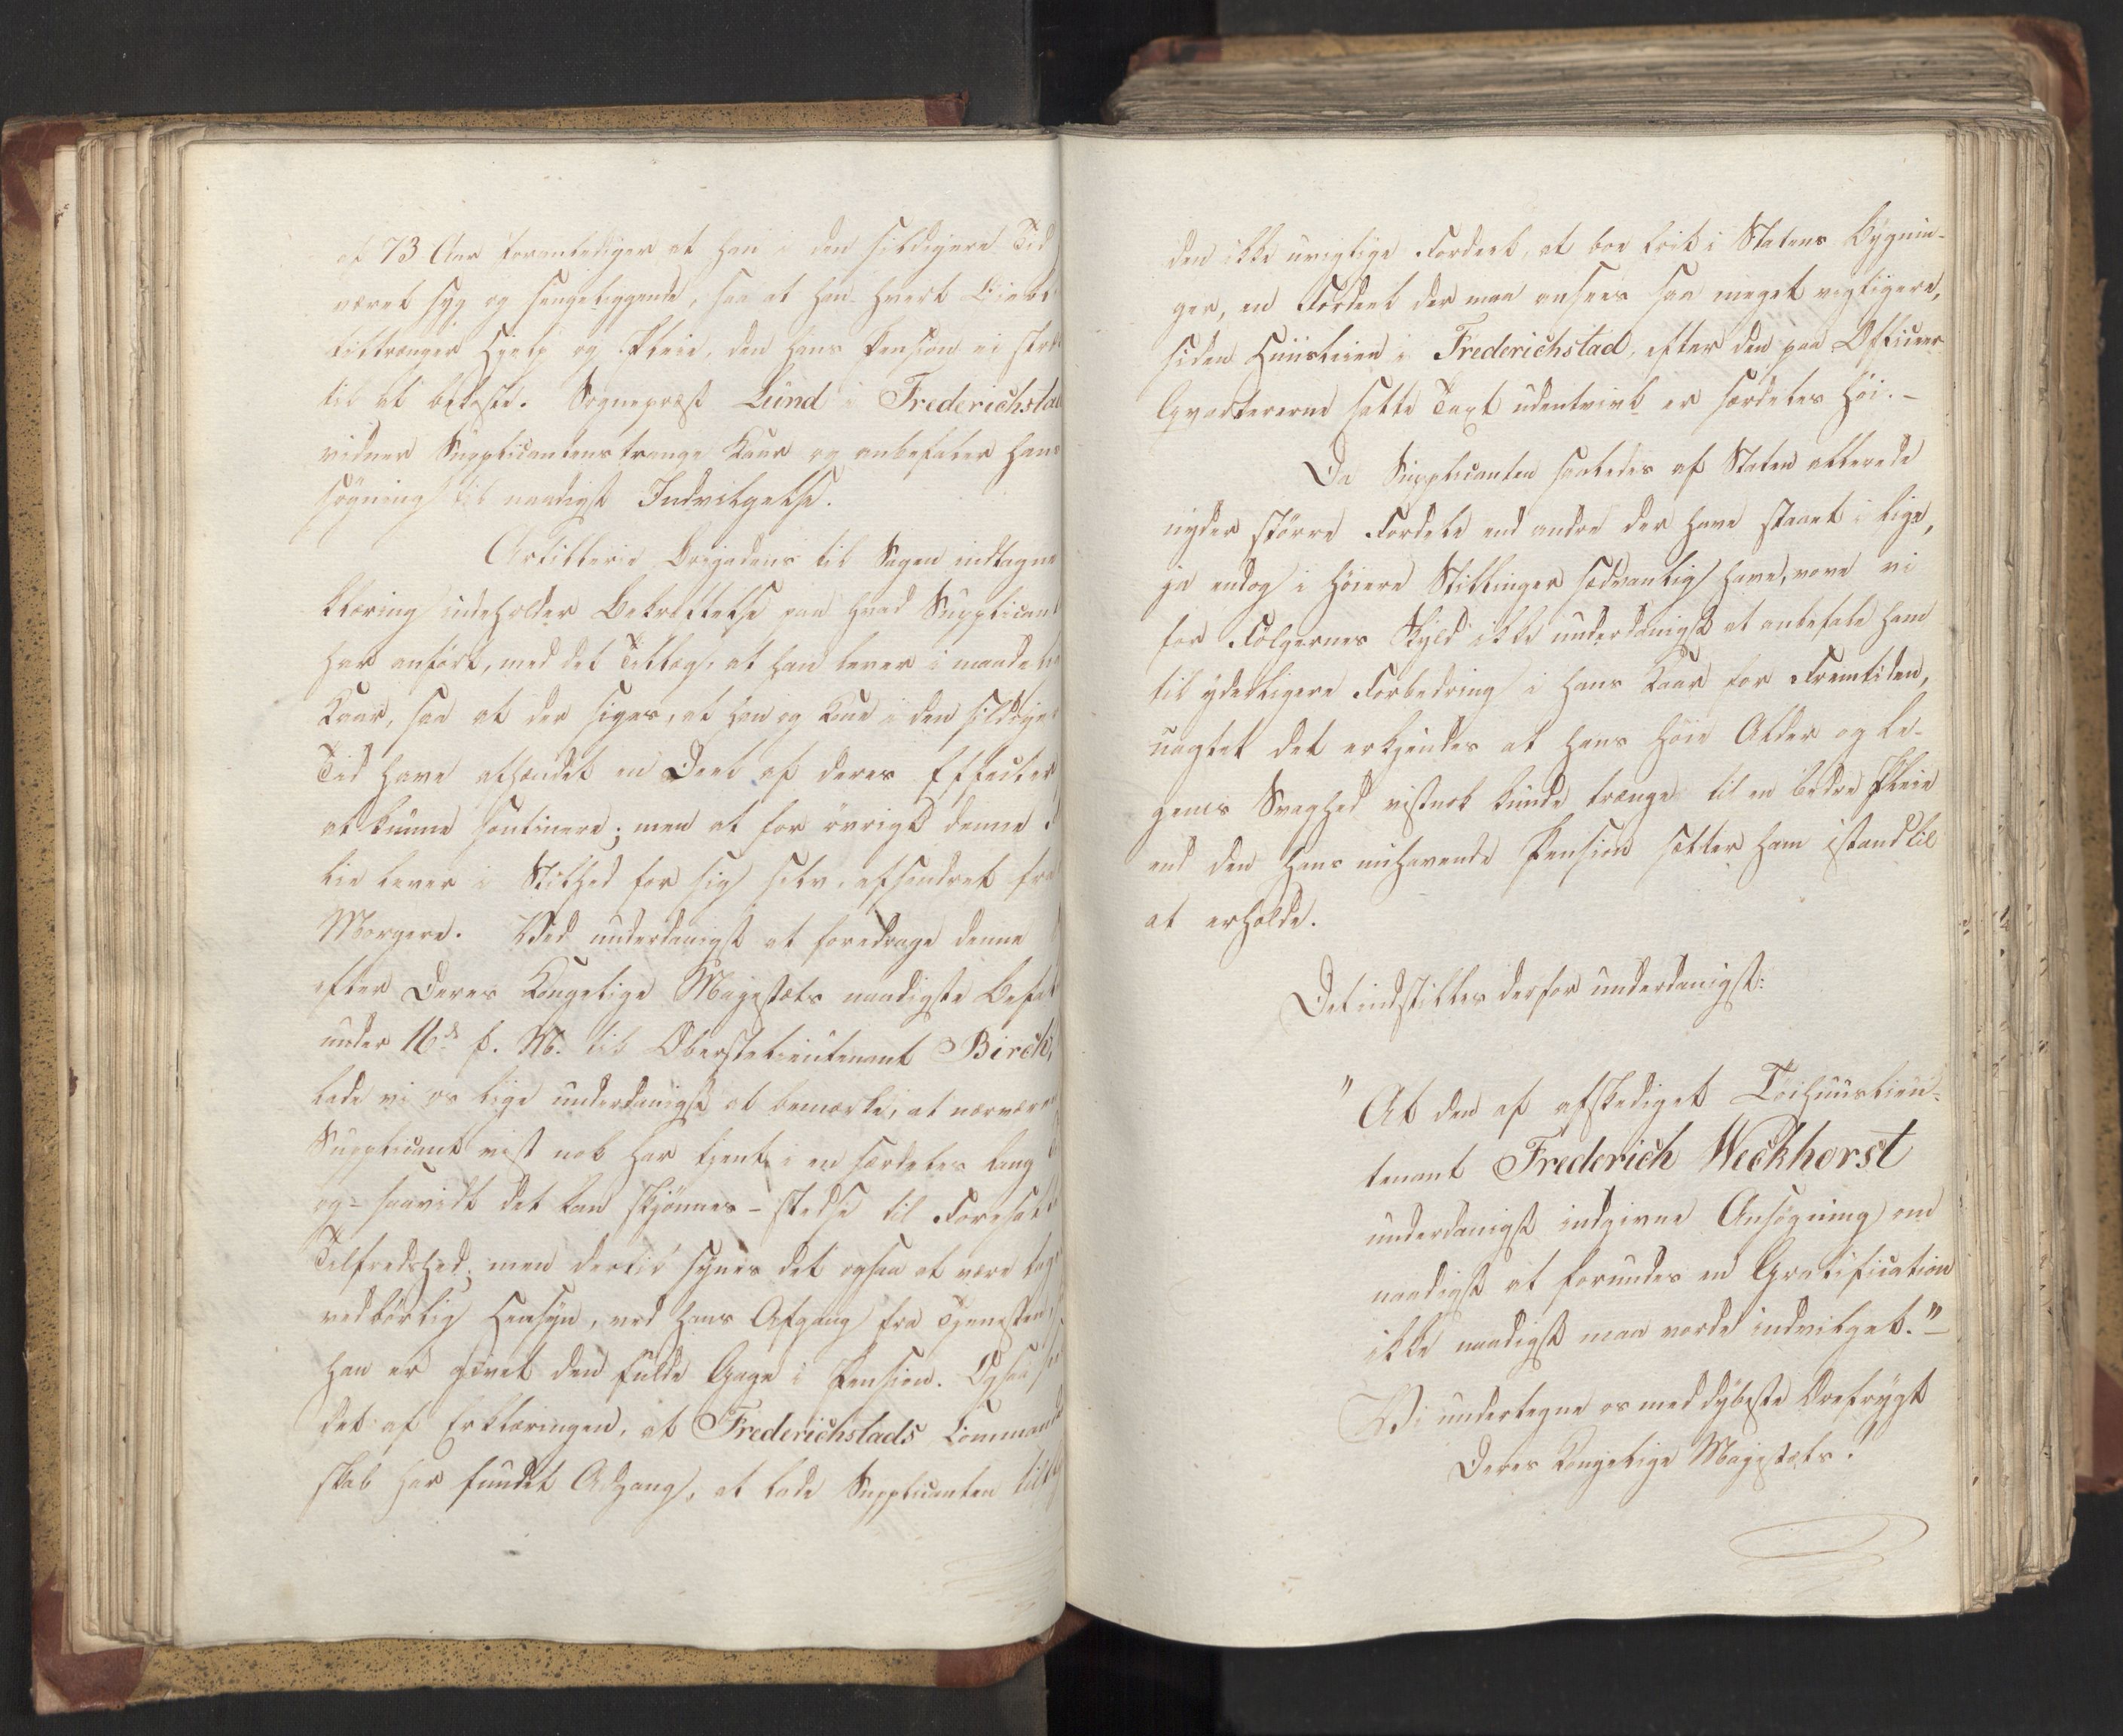 af 73 Aar foranlediger at han i den sildigere Tid
været syg og sengeliggende, saa at han hvert Øiebl
tiltrænger Hjelp og Pleie, den hans Pension ei stræk
til at bekoste. Sognepræst Lund i Frederichstad
vidner Supplicantens trange Kaar og anbefaler hans
søgning til naadigst Indvilgelse.
Artillerie Brigadens til Sagen indtagne
klæring indeholder Bekræftelse paa hvad Supplicant
har anført, med det Tillæg, at han lever i maadeli
Kaar, saa at der siges, at han og Kone i den sildige
Tid have afhændet en Deel af deres Effecter
at kunne soutinere; men at for øvrigt denne
lie lever i Stilhed for sig selv, afsondret fra
Morgere. Ved underdanigst at foredrage denne
efter Deres Kongelige Majestæts naadigste Befal
under 16de f. M. til Oberstelieutenant Birch,
lade vi os lige underdanigst at bemærke, at nærvære
Supplicant vist nok har tjent i en særdeles lang
og - saavidt det kan skjønnes - stedse til Foresatt
Tilfredshed; men dertil synes det ogsaa at være tag
vedbørlig Hensyn, ved hans Afgang fra Tjenesten,
han er givet den fulde Gage i Pension. Ogsaa
det af Erklæringen, at Frederichstads Command
skab har fundet Adgang, at lade Supplicanten
den ikke uvigtige Fordeel, at boe frit i Statens Bygnin-
ger, en Fordeel der maa ansees saa meget vigtigere,
siden Huusleien i Frederichstad, efter den paa Officeer
Qvartererne satte Taxt udentvivl er særdeles høi. -
Da Supplicanten saaledes af Staten allerede
nyder større Fordele end andre der have staaet i lige,
ja endog i høiere Stillinger sædvanlig have, vove vi
for Følgernes Skyld ikke underdanigst at anbefale ham
til yderligere Forbedring i hans Kaar for Fremtiden,
uagtet det erkjendes at hans høie Alder og Le-
gems Svaghed vistnok kunde trænge til en bedre Pleie
end den hans nuhavende Pension sætter ham istand til
at erholde.
Det indstilles derfor underdanigst:
"At den af afskediget Tøihuuslieu-
tenant Frederich Weckhorst
underdanigst indgivne Ansøgning om
naadigst at forundes en Gratification
ikke naadigst maa vorde indvilget." -
Vi undertegne os med dybeste Ærefrygt
Deres Kongelige Majestæts.